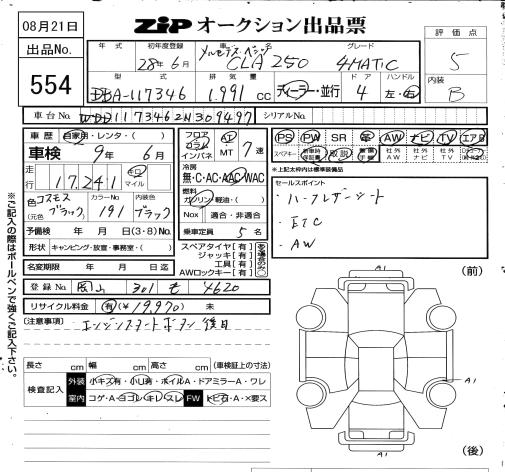 08月21日
ZIP オークション出品票
出品No.
554
年式
初年度登録
28年6月
車名
メルセデス・ベンツ
CLA 250
グレード
4MATIC
評価点
5
型式
DBA-117346
排気量
1.991 cc
ディーラー・並行
ドア
4
ハンドル
左・右
内装
B
車台No.
WDD1173462N309497
シリアルNo.
車歴
自家用・レンタ・( )
車検
9年 6月
走行
17,241
キロ
マイル
色
コスモス
ブラック
(元色 )
カラーNo.
191
内装色
ブラック
予備検 年 月 日 (3・8)No.
形状 キャンピング・放送・事務室・( )
名変期限 年 月 日迄
フロア
コラム
インパネ
AT
MT
7速
冷房
無・C・AC・AAC・WAC
燃料
ガソリン・軽油・( )
Nox 適合・非適合
乗車定員 5名
スペアタイヤ【有】
ジャッキ【有】
工具【有】
AWロックキー【有】
PS PW SR 革 AW ナビ TV エアB
スペアキー
新車時保証書
取説
社外AW
社外ナビ
社外TV
*上記太枠内は標準装備品
セールスポイント
・ハーフレザーシート
・ETC
・AW
登録No. 岡山 301 も 4620
リサイクル料金 有(¥19,970) 未
(注意事項)
エンジンスタートボタン後日
※ご記入の際はボールペンで強くご記入下さい。
長さ cm 幅 cm 高さ cm (車検証上の寸法)
検査記入
外装 小キズ有・小凹有・ホイルA・ドアミラーA・ワレ
室内 コゲ・A・ヨゴレ・キレ・スレ FW トビ石・A・X要ス
(前)
A1
A1
A1
(後)